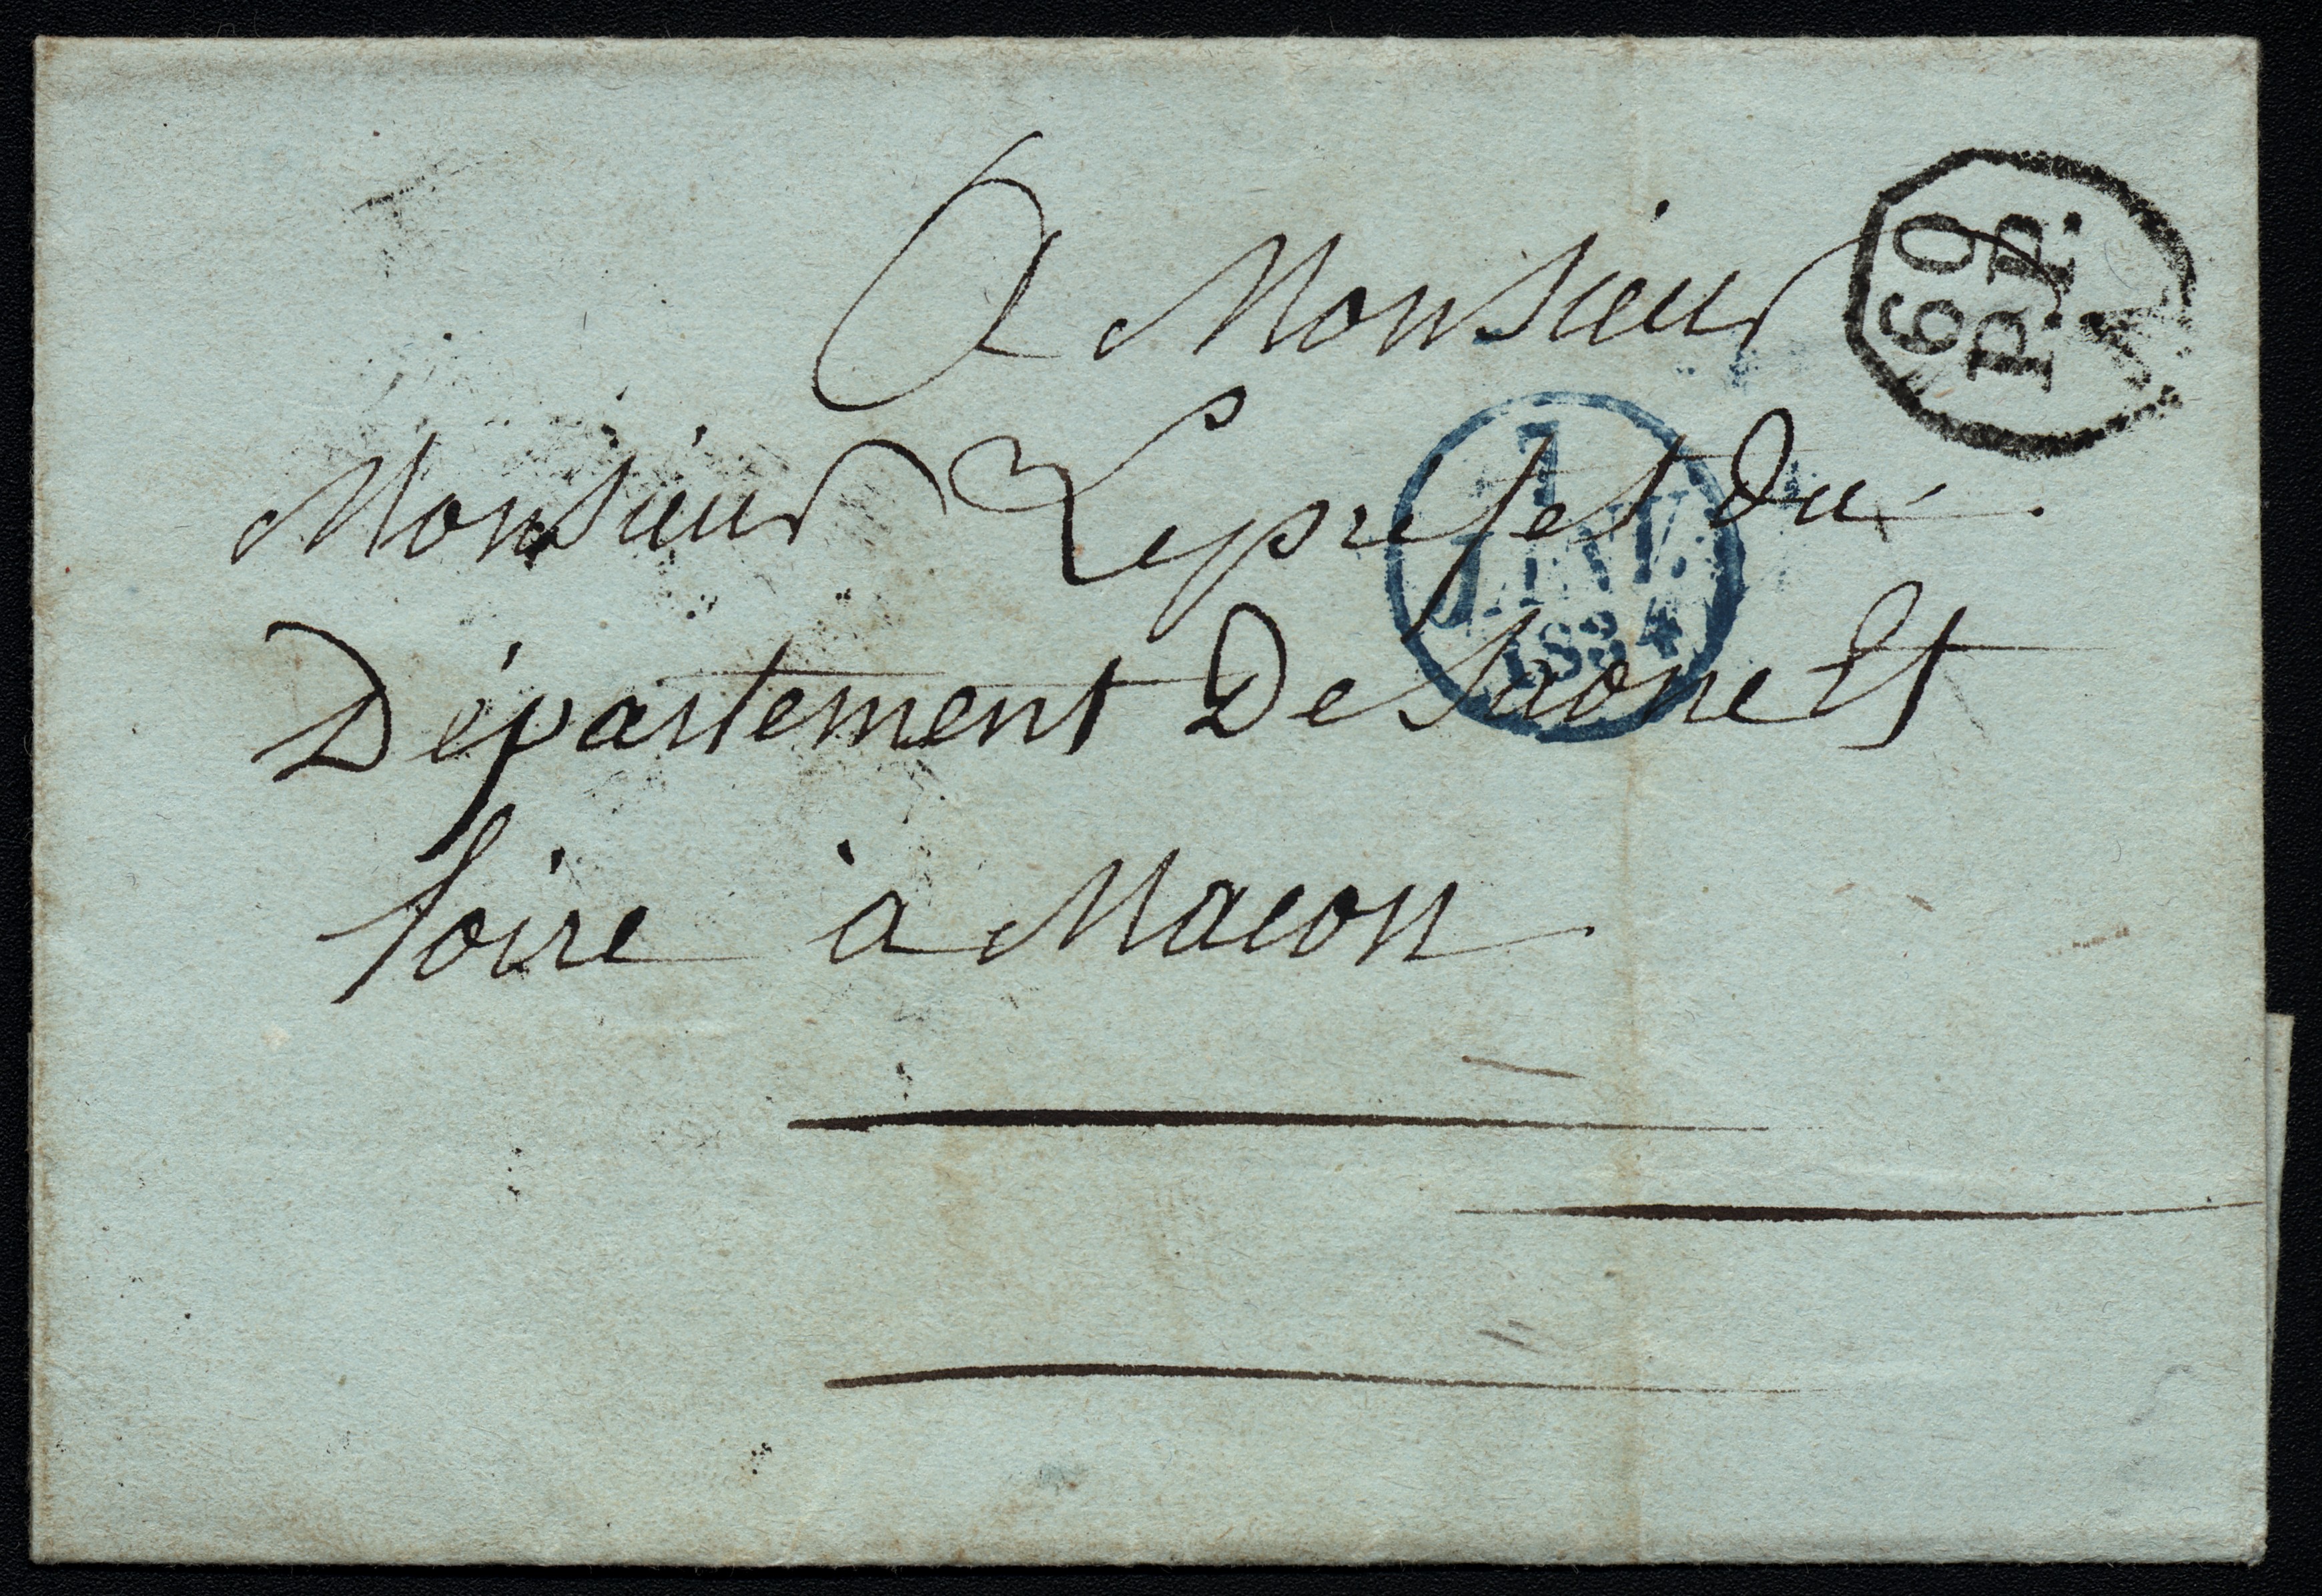 A Monsieur
60
P.P.
Monsieur Le prefet du
7
JANV.
1834
Département De Saone Et
loire à Macon